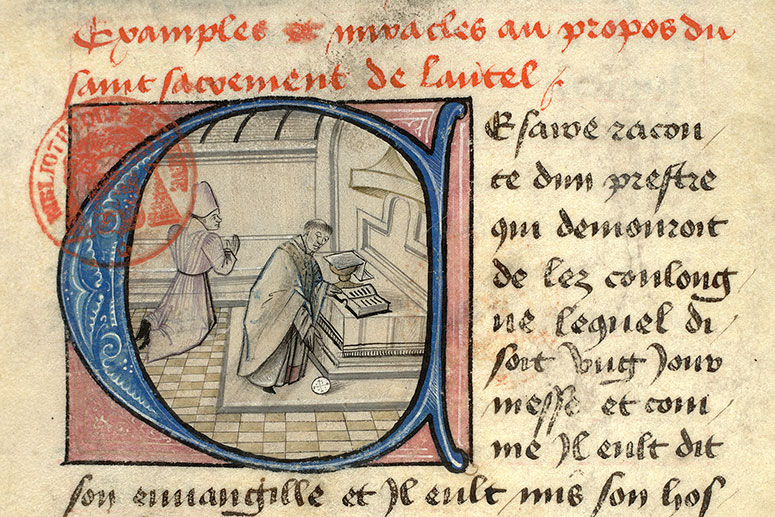 Examples et miracles au propos du
saint sacrement de lautel
CEsaire racon/
te dun prestre
qui demouroit
de lez coulong/
ne lequel di/
soit vng Jour
messe et com/
me Jl eult dit
son euuangille et Jl eult mis son hos/